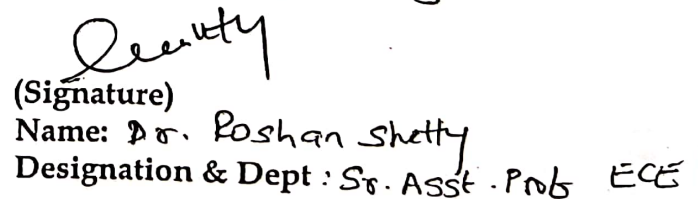 (Signature)
Name: Dr. Roshan Shetty
Designation & Dept : Sr. Asst. Prof ECE